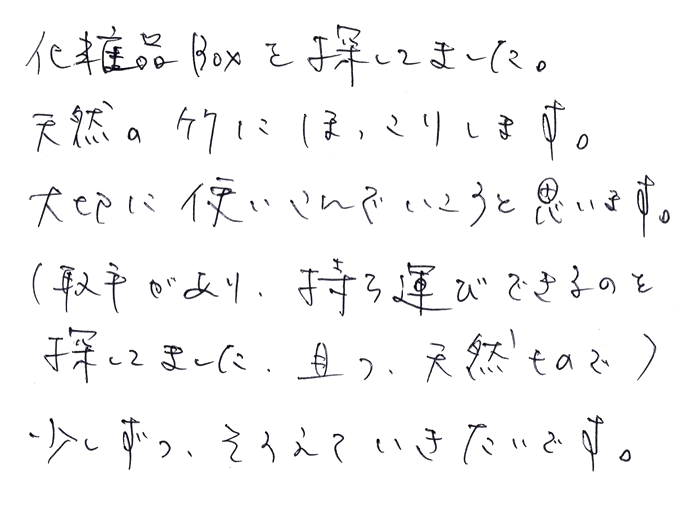 化粧品Boxを探してました。
天然の竹にほっこりします。
大切に使いこんでいこうと思います。
(取手があり、持ち運びできるのを
探してました、且つ、天然もので)
少しずつ、そろえていきたいです。